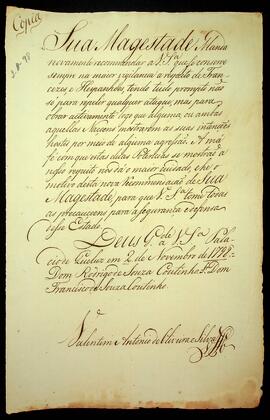 Copia
Sua Magestade Manda
novamente recommendar a V. S.ª que se conserve
sempre na maior vigilancia a respeito de Fran-
cezes, e Hespanhoes, tendo tudo prompto não
só para repelir qualquer ataque, mas para
obrar activamente logo que alguma, ou ambas
aquellas Nacoens mostrarem as suas intençoẽs
hostis por meio de alguma agressão. A má
fé com que estas duas Potencias se mostrão a
nosso respeito nos dá o maior cuidado, e he o
motivo desta nova recommendação de Sua
Magestade, para que V. S.ª tome todas
as precauçoens para a segurança e defensa
desse Estado.
Deus G.de a V. S.ª Pala-
cio de Queluz em 2 de Novembro de 1798 =
Dom Rodrigo de Souza Coutinho = S.r Dom
Francisco de Souza Coutinho.
Valentim Antonio de Oliveira e Silva